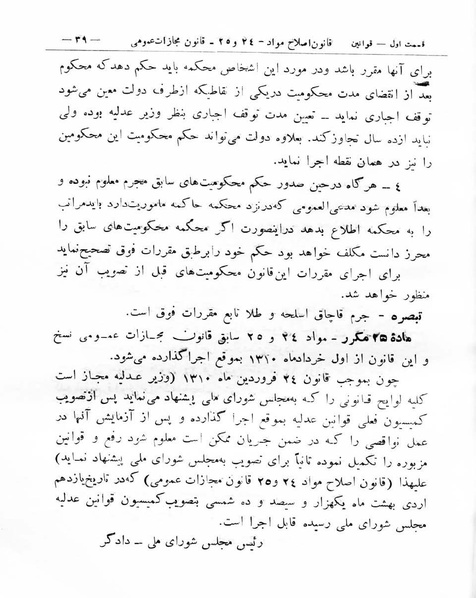 قسمت اول — قوانین قانون اصلاح مواد - ۲۴ و ۲۵ - قانون مجازات عمومی — ۳۹ —
برای آنها مقرر باشد ودر مورد این اشخاص محکمه باید حکم دهد که محکوم
بعد از انقضای مدت محکومیت دریکی از نقاطیکه ازطرف دولت معین می‌شود
توقف اجباری نماید — تعیین مدت توقف اجباری بنظر وزیر عدلیه بوده ولی
نباید ازده سال تجاوز کند. بعلاوه دولت می‌تواند حکم محکومیت این محکومین
را نیز در همان نقطه اجرا نماید.
۴ — هر گاه درحین صدور حکم محکومیت‌های سابق مجرم معلوم نبوده و
بعداً معلوم شود مدعی‌العمومی که درنزد محکمه حاکمه ماموریت دارد باید مراتب
را به محکمه اطلاع بدهد دراینصورت اگر محکمه محکومیت‌های سابق را
محرز دانست مکلف خواهد بود حکم خود رابرطبق مقررات فوق تصحیح نماید
برای اجرای مقررات این قانون محکومیت‌های قبل از تصویب آن نیز
منظور خواهد شد.
تبصره - جرم قاچاق اسلحه و طلا تابع مقررات فوق است.
مادهٔ ۲۵ مکرر - مواد ۲۴ و ۲۵ سابق قانون مجازات عمومی نسخ
و این قانون از اول خردادماه ۱۳۱۰ بموقع اجرا گذارده می‌شود.
چون بموجب قانون ۲۴ فروردین ماه ۱۳۱۰ (وزیر عدلیه مجاز است
کلیه لوایح قانونی را که به‌مجلس شورای ملی پیشنهاد می‌نماید پس ازتصویب
کمیسیون فعلی قوانین عدلیه بموقع اجرا گذارده و پس از آزمایش آنها در
عمل نواقصی را که در ضمن جریان ممکن است معلوم شود رفع و قوانین
مزبوره را تکمیل نموده ثانیاً برای تصویب به‌مجلس شورای ملی پیشنهاد نماید)
علیهذا (قانون اصلاح مواد ۲۴ و ۲۵ قانون مجازات عمومی) که در تاریخ یازدهم
اردی بهشت ماه یکهزار و سیصد و ده شمسی بتصویب کمیسیون قوانین عدلیه
مجلس شورای ملی رسیده قابل اجرا است.
رئیس مجلس شورای ملی — دادگر